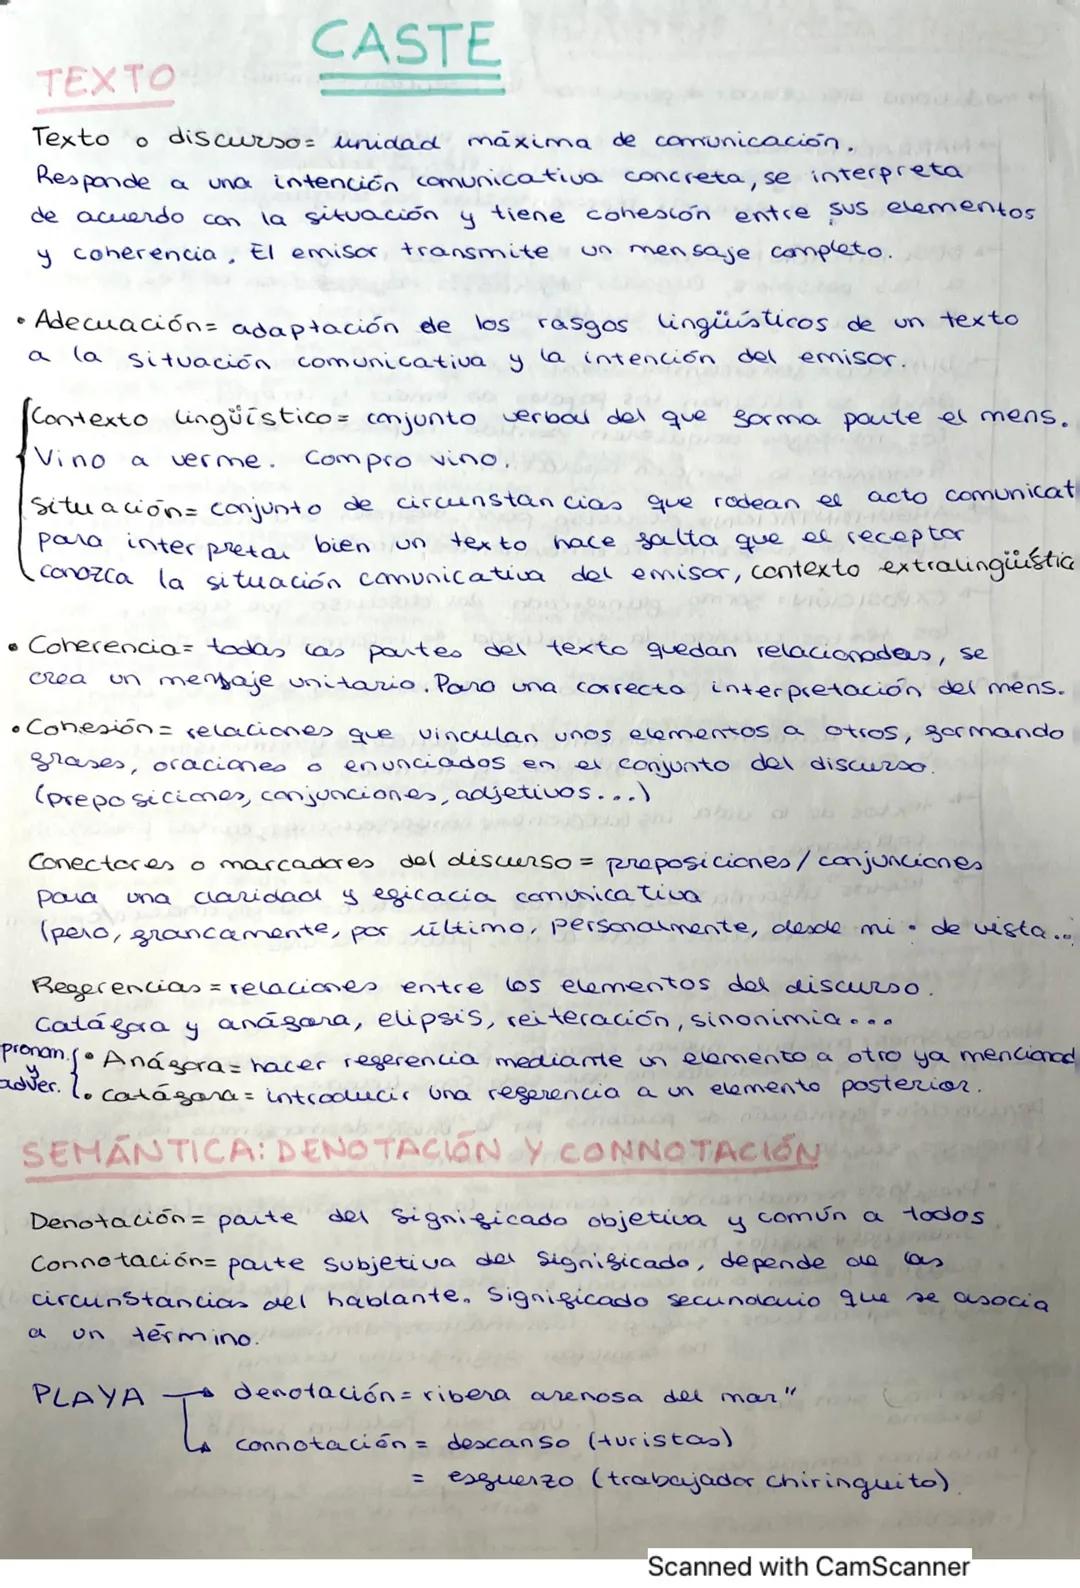 CASTE
TEXTO
Texto o discurso= unidad máxima de comunicación.
Responde a una intención comunicativa concreta, se interpreta
de acuerdo con la situación y tiene cohesión entre sus elementos
y coherencia. El emisor transmite un mensaje completo.
• Adecuación= adaptación de los rasgos lingüísticos de un texto
a la situación comunicativa y la intención del emisor.
Contexto lingüístico= conjunto verbal del que forma parte el mens.
Vino a verme. Compro vino.
Situación= conjunto de circunstancias que rodean el acto comunicat
para interpretar bien un texto hace falta que el receptor
conozca la situación comunicativa del emisor, contexto extralingüístic
• Coherencia= todas las partes del texto quedan relacionadas, se
crea un mensaje unitario. Para una correcta interpretación del mens.
• Cohesión= relaciones que vinculan unos elementos a otros, formando
frases, oraciones o enunciados en el conjunto del discurso.
(preposiciones, conjunciones, adjetivos...)
Conectores o marcadores del discurso = preposiciones/conjunciones
para una claridad y eficacia comunicativa
(pero, francamente, por último, personalmente, desde mi • de vista...
Referencias = relaciones entre los elementos del discurso.
Catáfora y anáfora, elipsis, reiteración, sinonimia...
pronom. y adver.
• Anáfora= hacer referencia mediante un elemento a otro ya mencionad
• catáfora= introducir una referencia a un elemento posterior.
SEMÁNTICA: DENOTACIÓN Y CONNOTACIÓN
Denotación= parte del significado objetiva y común a todos
Connotación= parte subjetiva del significado, depende de las
circunstancias del hablante. Significado secundario que se asocia
a un término.
PLAYA → denotación= ribera arenosa del mar"
↳ connotación= descanso (turistas)
= esfuerzo (trabajador chiringuito)
Scanned with CamScanner